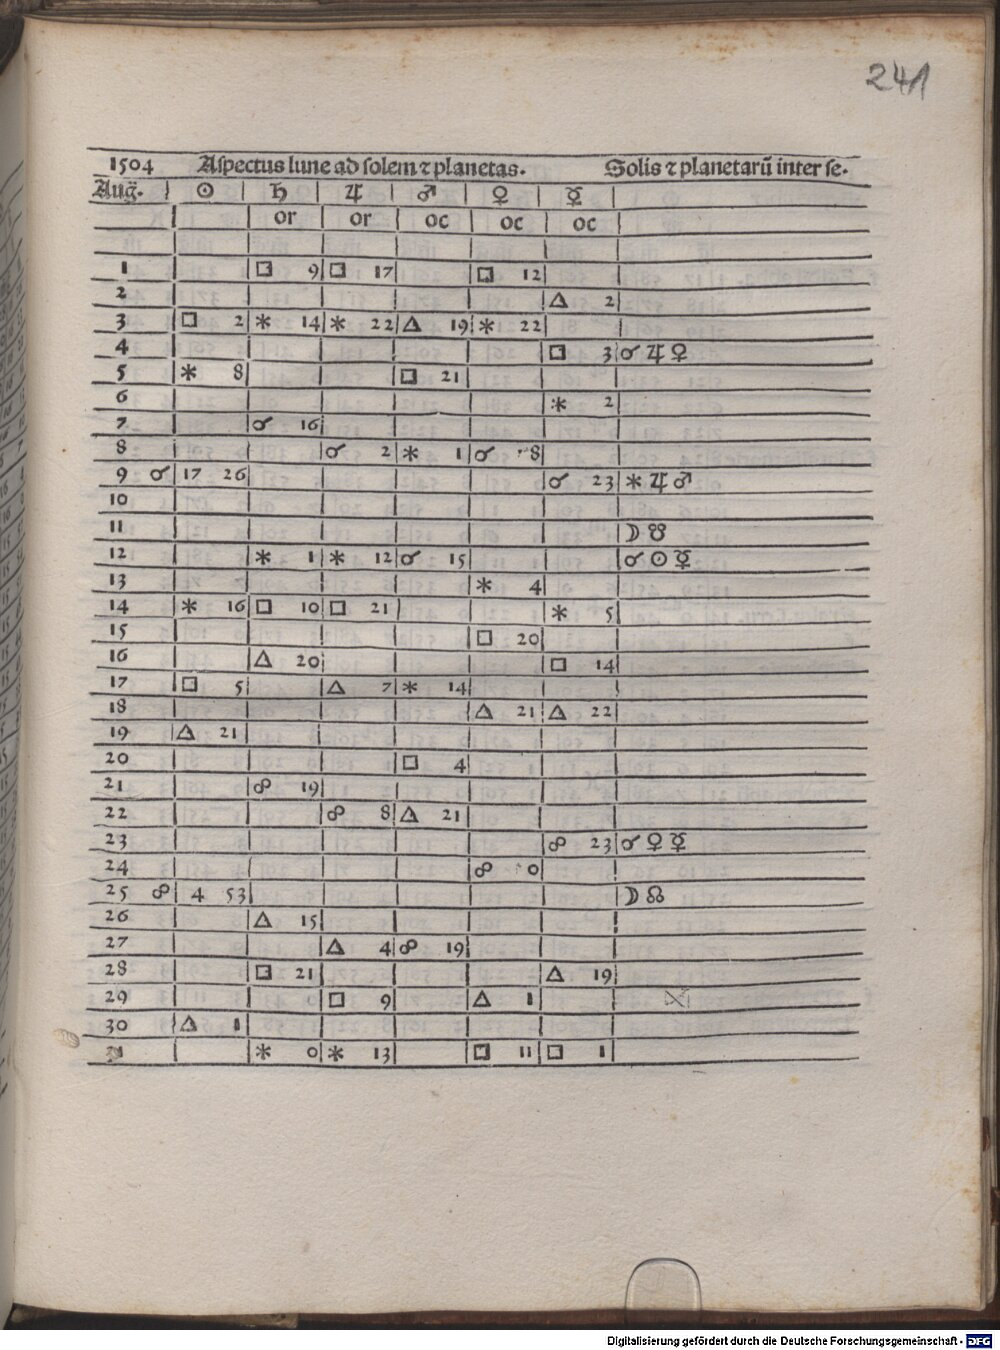 241
1504 Aspectus lune ad solem ⁊ planetas. Solis ⁊ planetarũ inter se.
Aug̃. ☉ ♄ ♃ ♂ ♀ ☿
or or oc oc oc
1 □ 9 □ 17 □ 12
2 △ 2
3 □ 2 ⚹ 14 ⚹ 22 △ 19 ⚹ 22
4 □ 3 ☌ ♃ ♀
5 ⚹ 8 □ 21
6 ⚹ 2
7 ☌ 16
8 ☌ 2 ⚹ 1 ☌ 8
9 ☌ 17 26 ☌ 23 ⚹ ♃ ♂
10
11 ☽ ☋
12 ⚹ 1 ⚹ 12 ☌ 15 ☌ ☉ ☿
13 ⚹ 4
14 ⚹ 16 □ 10 □ 21 ⚹ 5
15 □ 20
16 △ 20 □ 14
17 □ 5 △ 7 ⚹ 14
18 △ 21 △ 22
19 △ 21
20 □ 4
21 ☍ 19
22 ☍ 8 △ 21
23 ☍ 23 ☌ ♀ ☿
24 ☍ 0
25 ☍ 4 53 ☽ ☊
26 △ 15
27 △ 4 ☍ 19
28 □ 21 △ 19
29 □ 9 △ 1
30 △ 1
31 ⚹ 0 ⚹ 13 □ 11 □ 1
Digitalisierung gefördert durch die Deutsche Forschungsgemeinschaft - DFG